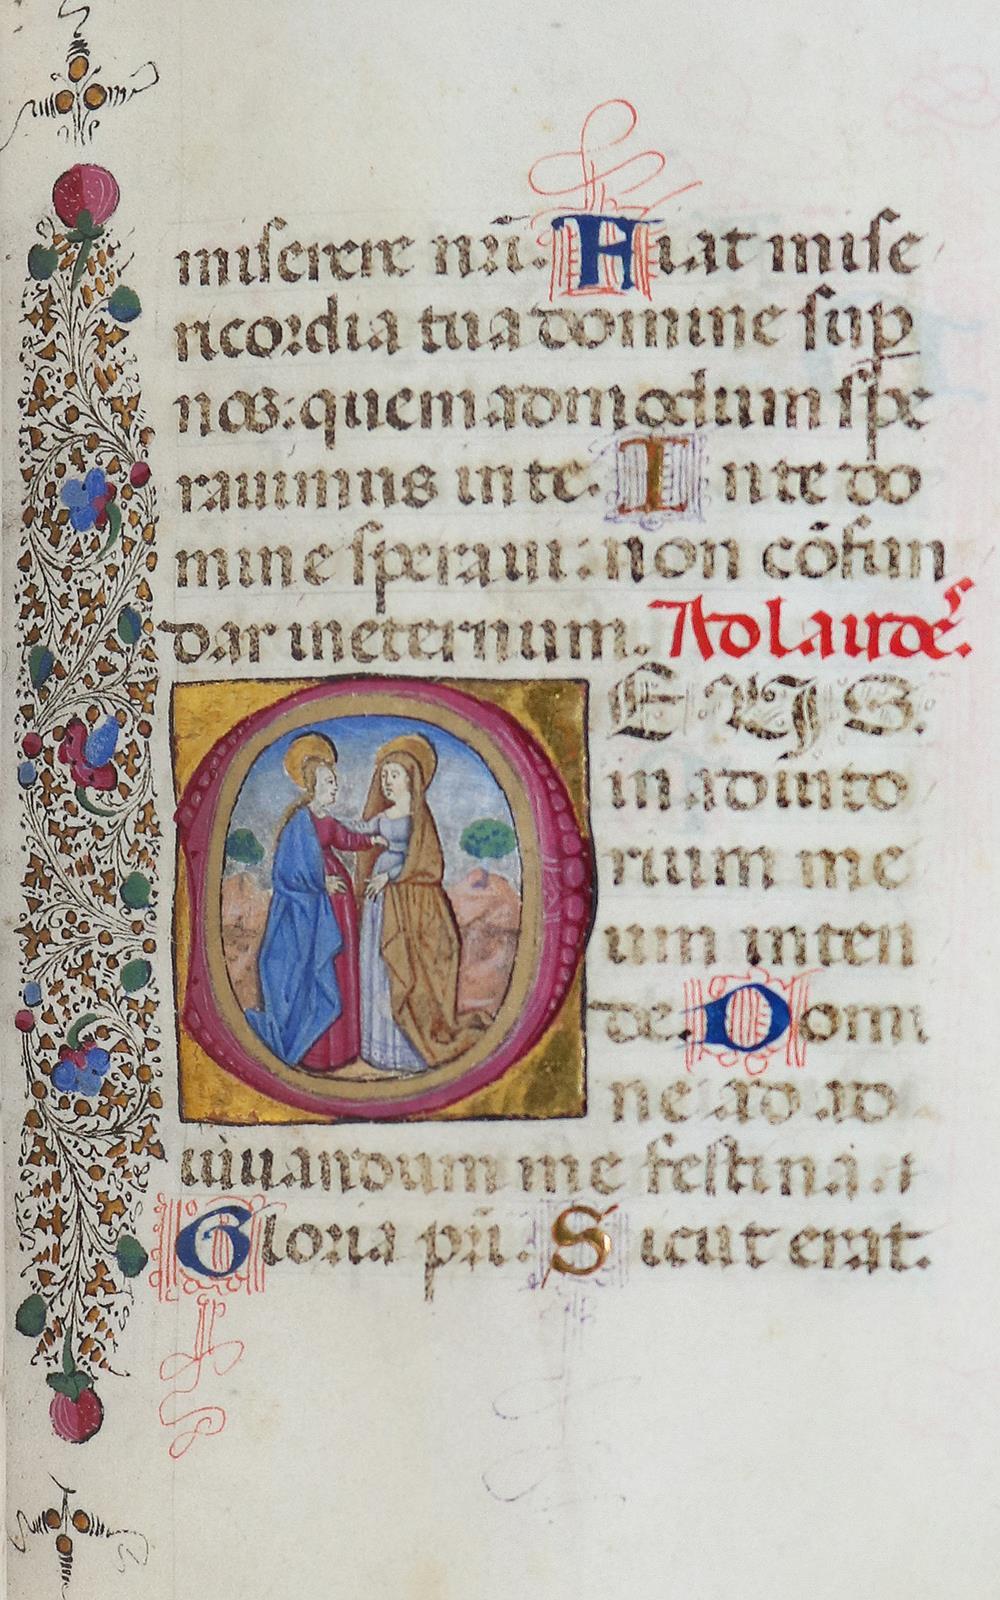 miserere nr̄i. Fiat mise
ricordia tua domine sup
nos: quemadmodum spe
rauimus in te. In te do
mine speraui: non cōfun
dar in eternum. Ad laudes.
DEVS.
in adiuto
rium me
um inten
de. Domi
ne ad ad
iuuandum me festina. +
Gloria pr̄i. Sicut erat.